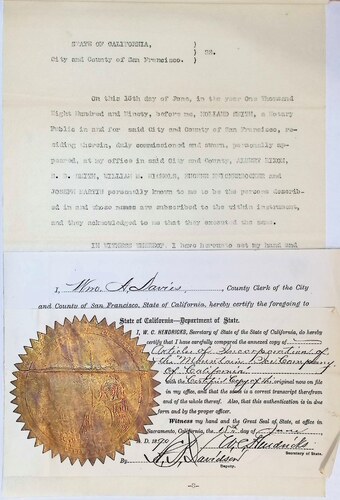 STATE OF CALIFORNIA, )
) ss.
City and County of San Francisco. )
On this 10th day of June, in the year One Thousand
Eight Hundred and Ninety, before me, HOLLAND SMITH, a Notary
Public in and for said City and County of San Francisco, re-
siding therein, duly commissioned and sworn, personally ap-
peared, at my office in said City and County,
and
JOSEPH personally known to me to be the persons describ-
ed in and whose names are subscribed to the within instrument,
and they acknowledged to me that they executed the same.
IN WITNESS WHEREOF, I have hereunto set my hand and
I, Wm. A. Davies, County Clerk of the City
and County of San Francisco, State of California, hereby certify the foregoing to
State of California—Department of State.
I, W. C. HENDRICKS, Secretary of State of the State of California, do hereby
certify that I have carefully compared the annexed copy of
Articles of Incorporation of
the "Mountain Company
of California"
with the Certified Copy of the original now on file
in my office, and that the same is a correct transcript therefrom
and of the whole thereof. Also, that this authentication is in due
form and by the proper officer.
Witness my hand and the Great Seal of State, at office in
Sacramento, California, the 15th day of June
A. D. 1890
W. C. Hendricks
Secretary of State.
By Davidson
Deputy.